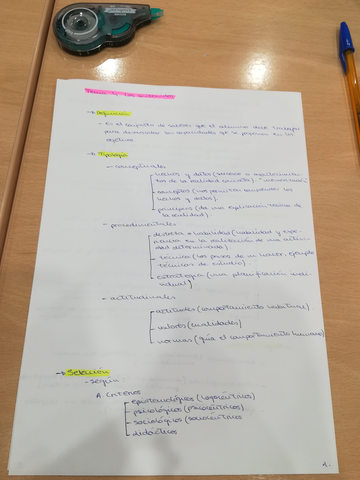 Tema 4: Los contenidos
→ Definición
- Es el conjunto de saberes que el alumno debe trabajar
para demostrar las capacidades que se proponen en los
objetivos.
→ Tipología
- conceptuales
hechos y datos (
tos de la realidad concreta). "memorización"
conceptos (nos permiten comprender los
hechos y datos).
principios (da una explicación
de la realidad)
- procedimentales
destreza o habilidad (habilidad y expe
riencia en la realización de una activi
dad determinada).
técnica (los pasos de un hacer, ejemplo
técnicas de estudio)
estrategia (una planificación
)
- actitudinales
actitudes (comportamiento habitual)
valores (cualidades)
normas (guía el comportamiento humano)
→ Selección
- según
A. Criterios
epistemológicos (logocéntricos)
psicológicos (psicocéntricos)
sociológicos (sociocéntricos
didácticos
1.